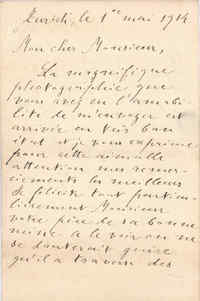 le 1er mai 1914
Mon cher Monsieur,
La magnifique
photographie que
vous avez eu l'amabi-
lité de m'envoyer est
arrivée en très bon
état et je vous exprime
pour cette aimable
attention mes remer-
ciements les meilleurs
Je félicite tout particu-
lièrement Monsieur
votre père de sa bonne
mine. A le voir on ne
se douterait guère
qu'il a travaillé des